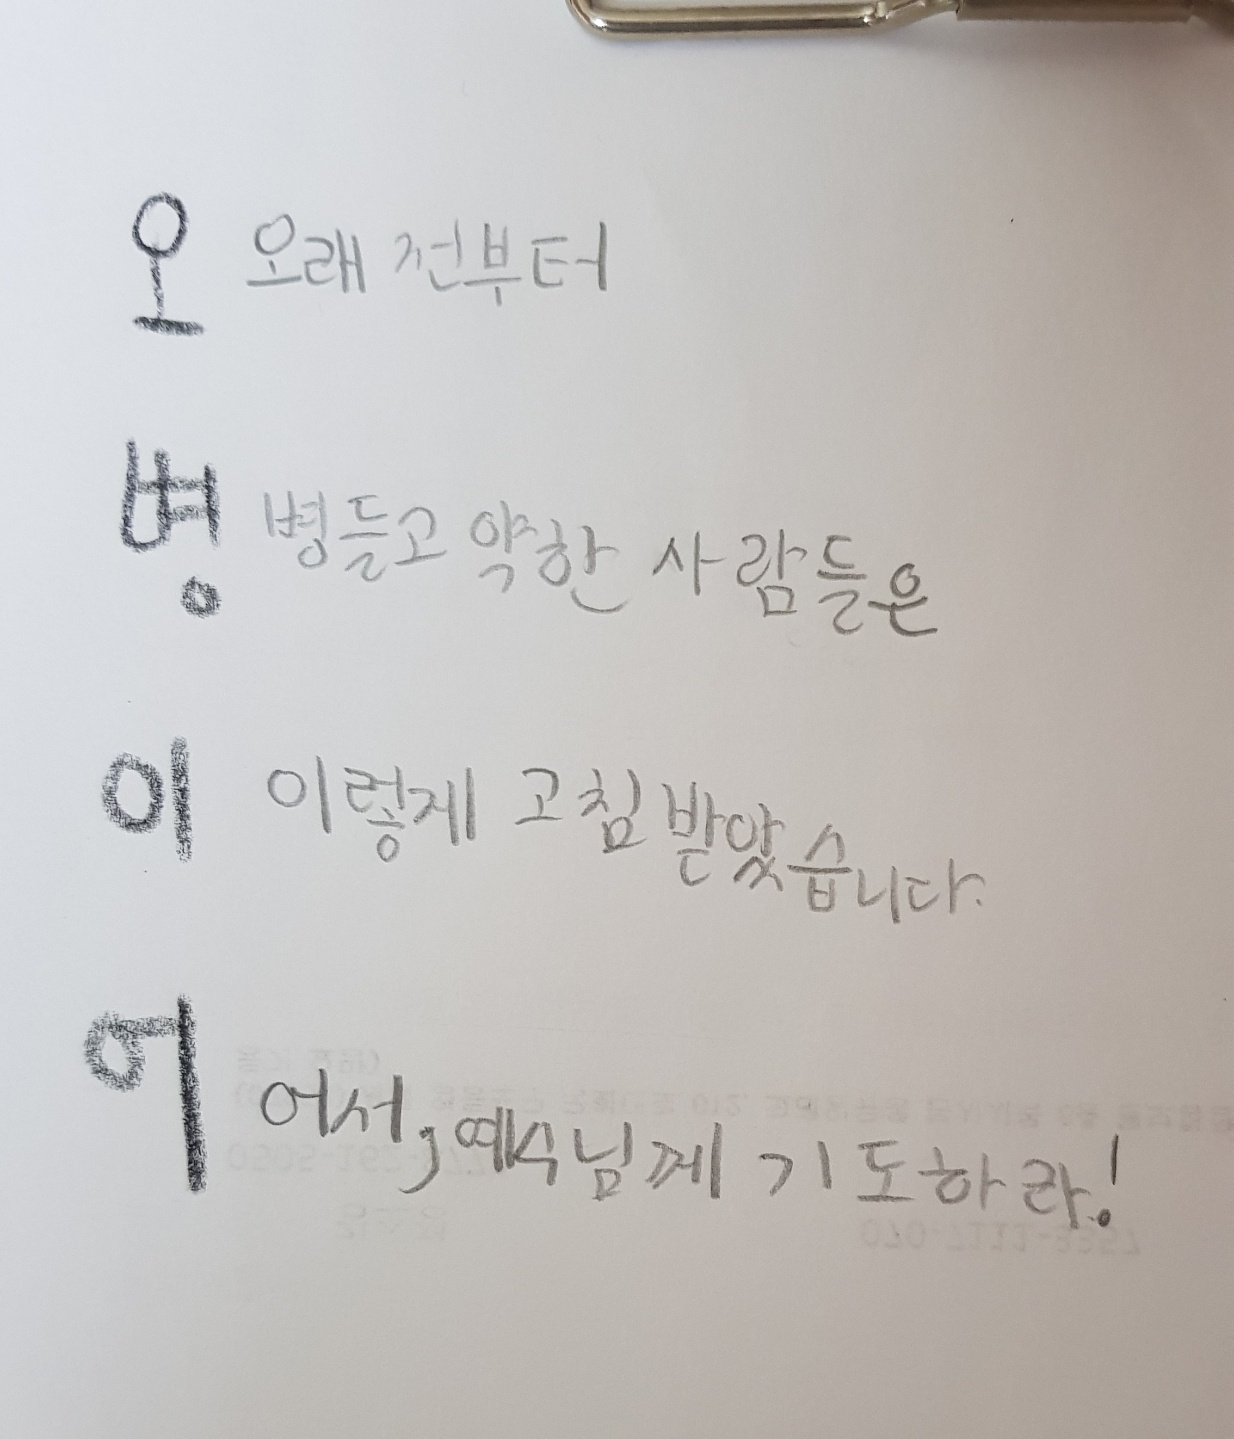 오 오래 전부터
병 병들고 약한 사람들은
이 이렇게 고침 받았습니다.
어 어서, 예수님께 기도하라!
070-7111-8357